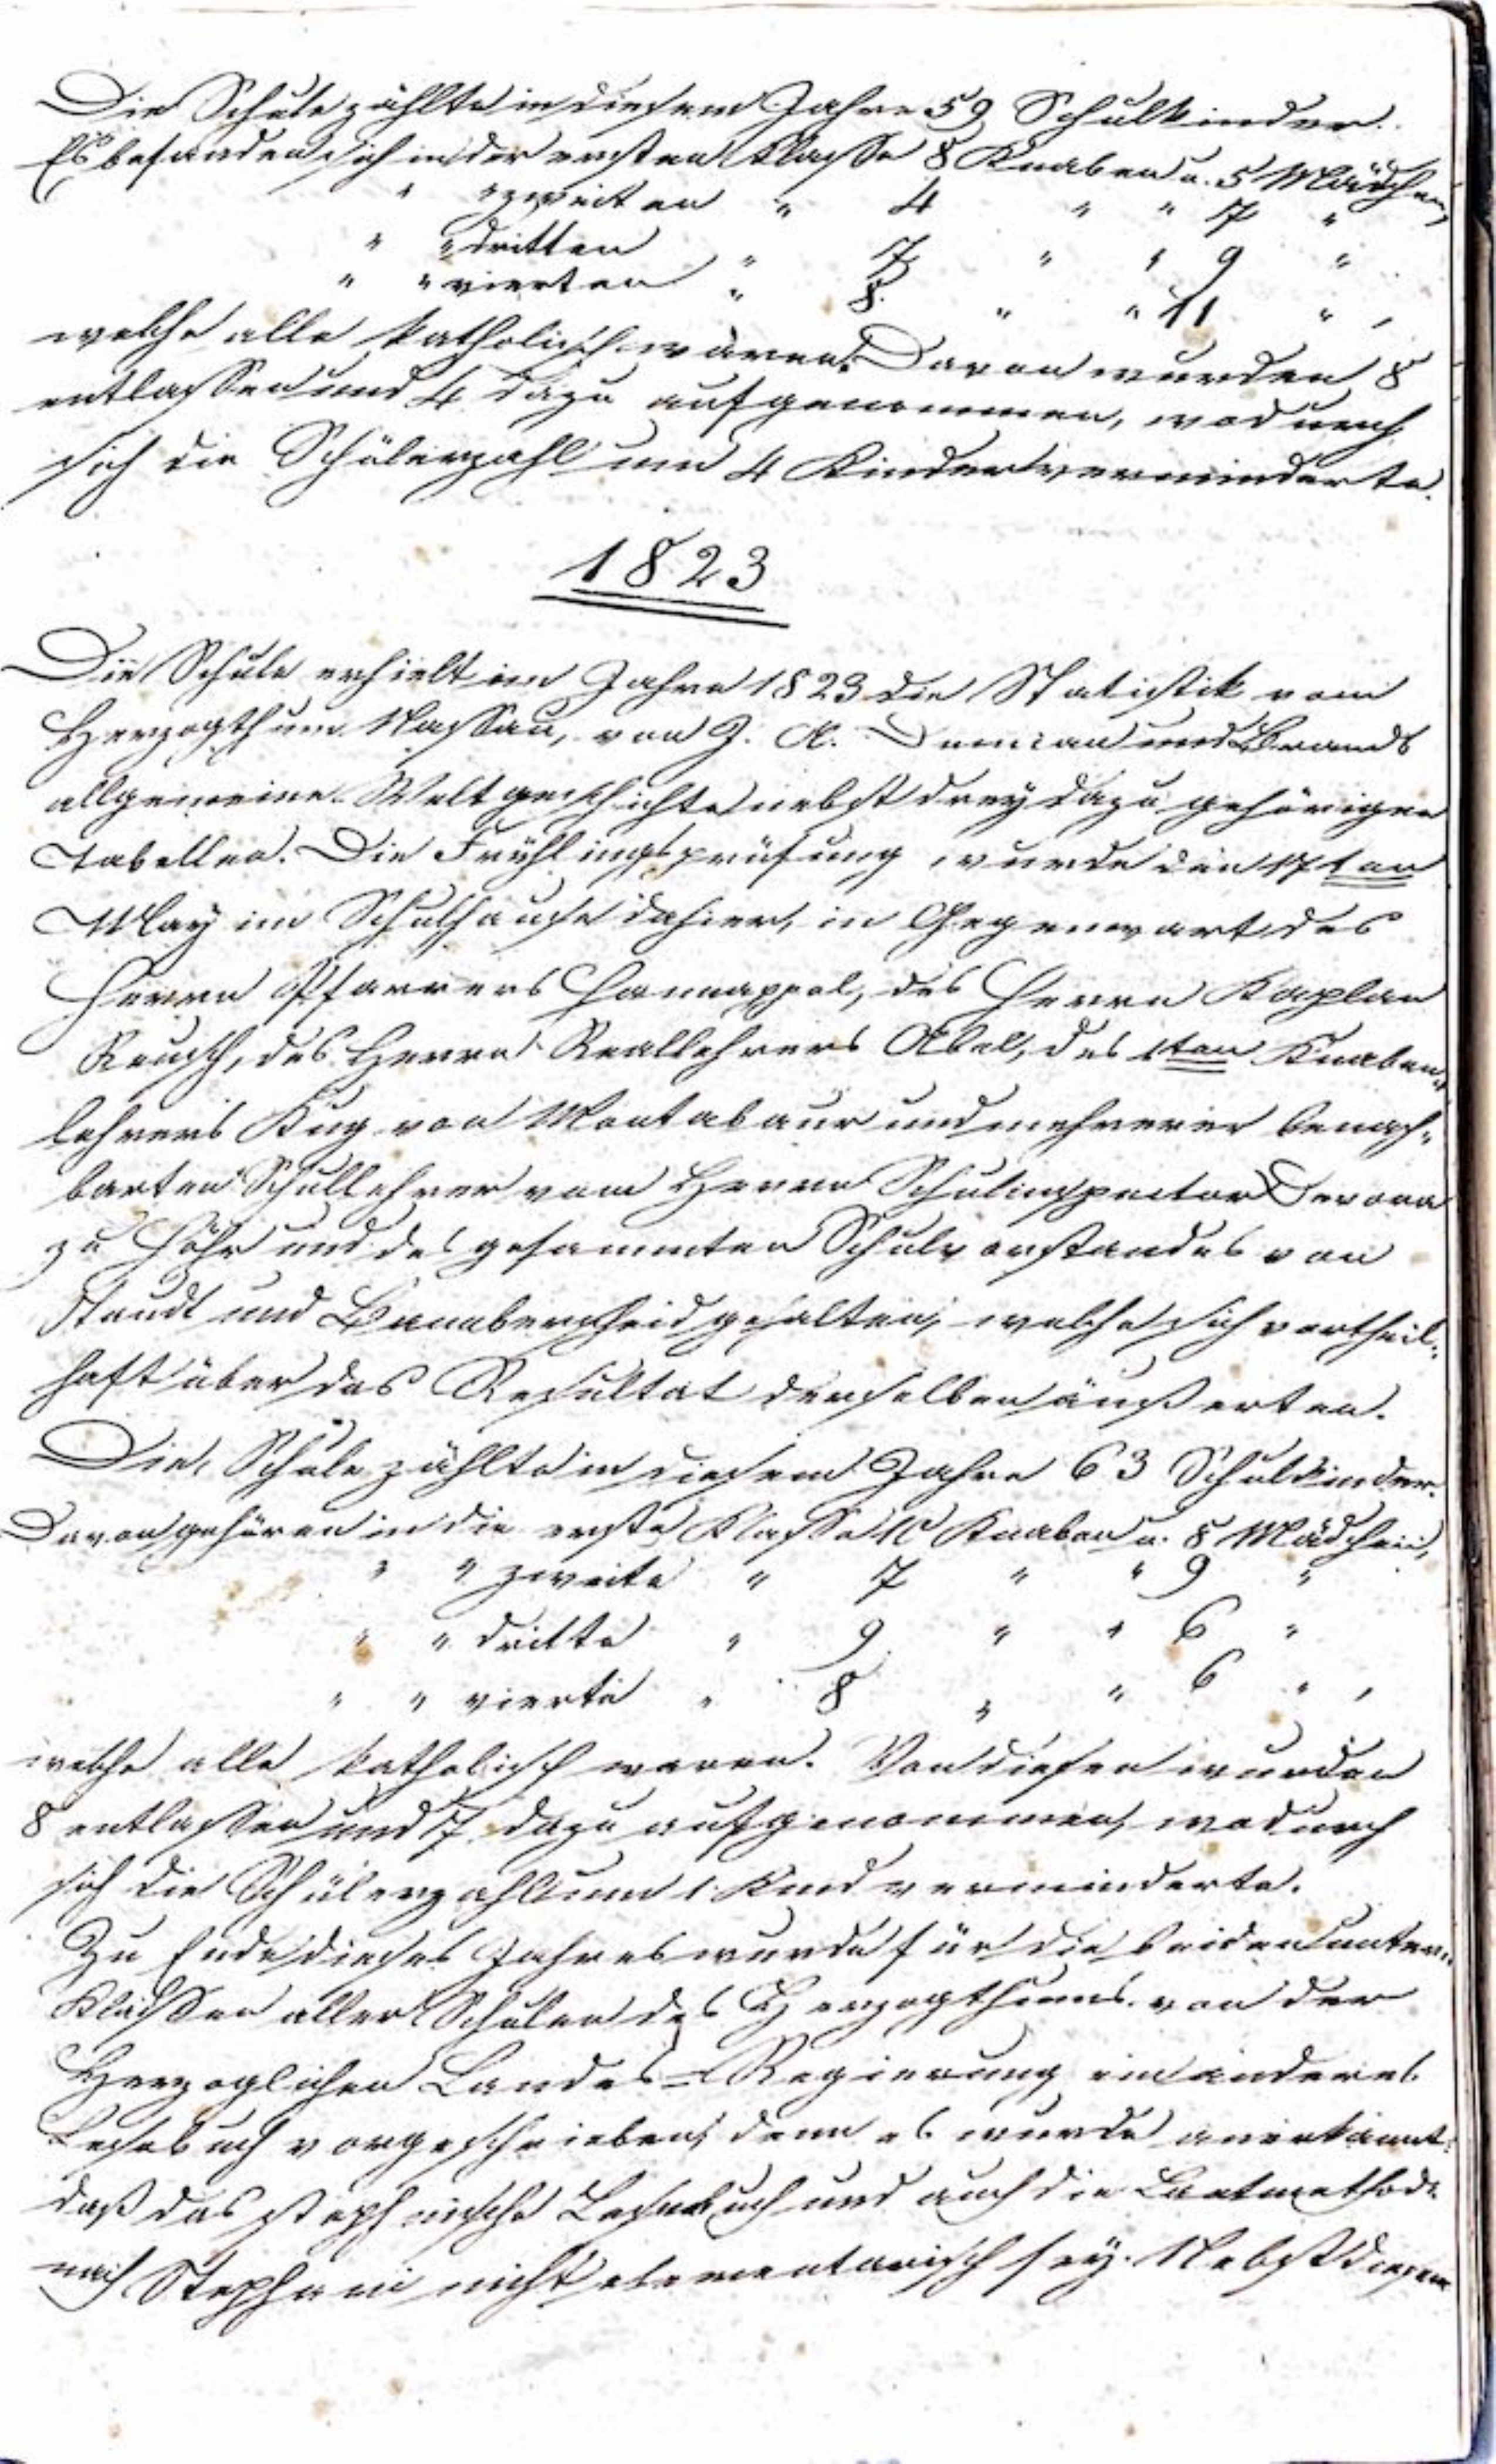 Die Schule zählte in diesem Jahre 59 Schulkinder.
Es befanden sich in der ersten Klasse 8 Knaben u. 5 Mädchen,
" " zweiten " 4 " " 7 "
" " dritten " 7 " " 9 "
" " vierten " 8 " " 11 " ,
welche alle katholisch waren. Davon wurden 8
entlassen und 4 dazu aufgenommen, wodurch
sich die Schülerzahl um 4 Kinder verminderte.
1823
Die Schule erhielt im Jahre 1823 die Statistik vom
Herzogthum Nassau, von J. A. Demian und Brands
allgemeine Weltgeschichte nebst drey dazu gehörigen
Tabellen. Die Frühlingsprüfung wurde den 17ten
May im Schulhause dahier, in Gegenwart des
Herrn Pfarrers Hannappel, des Herrn Kaplan
Reusch, des Herrn Reallehrers Abel, des 1ten Knaben„
lehrers Kug von Montabaur und mehrerer benach„
barten Schullehrer vom Herrn Schulinspector Devora
zu Höhr und des gesammten Schulvorstandes von
Staudt und Bannberscheid gehalten, welche sich vortheil„
haft über das Resultat derselben äußerten.
Die Schule zählte in diesem Jahre 63 Schulkinder.
Davon gehören in die erste Klasse 10 Knaben u. 8 Mädchen,
" " zweite " 7 " " 9 "
" " dritte " 9 " " 6 "
" " vierte " 8 " " 6 " ,
welche alle katholisch waren. Von diesen wurden
8 entlassen und 7 dazu aufgenommen, wodurch
sich die Schülerzahl um 1 Kind verminderte.
Zu Ende dieses Jahres wurde für die beiden unter„
Klassen aller Schulen des Herzogthums von der
Herzoglichen Landes=Regierung ein anderes
Lesebuch vorgeschrieben, denn es wurde anerkannt,
daß das stephanische Lesebuch und auch die Lautmethode
nach Stephani nicht elementarisch sey. Nebst diesem